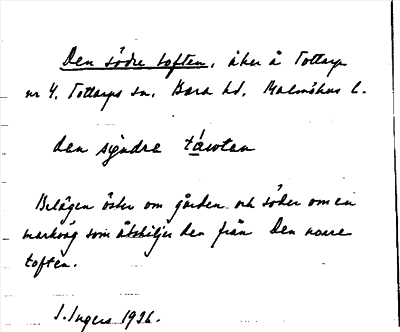 Den södre toften, åker å Tottarp
nr 4, Tottarps sn, Bara hd, Malmöhus l.
den syndre táwten
Belägen öster om gården och söder om en
markväg som åtskiljer den från Den norre
toften.
I. Ingers 1926.